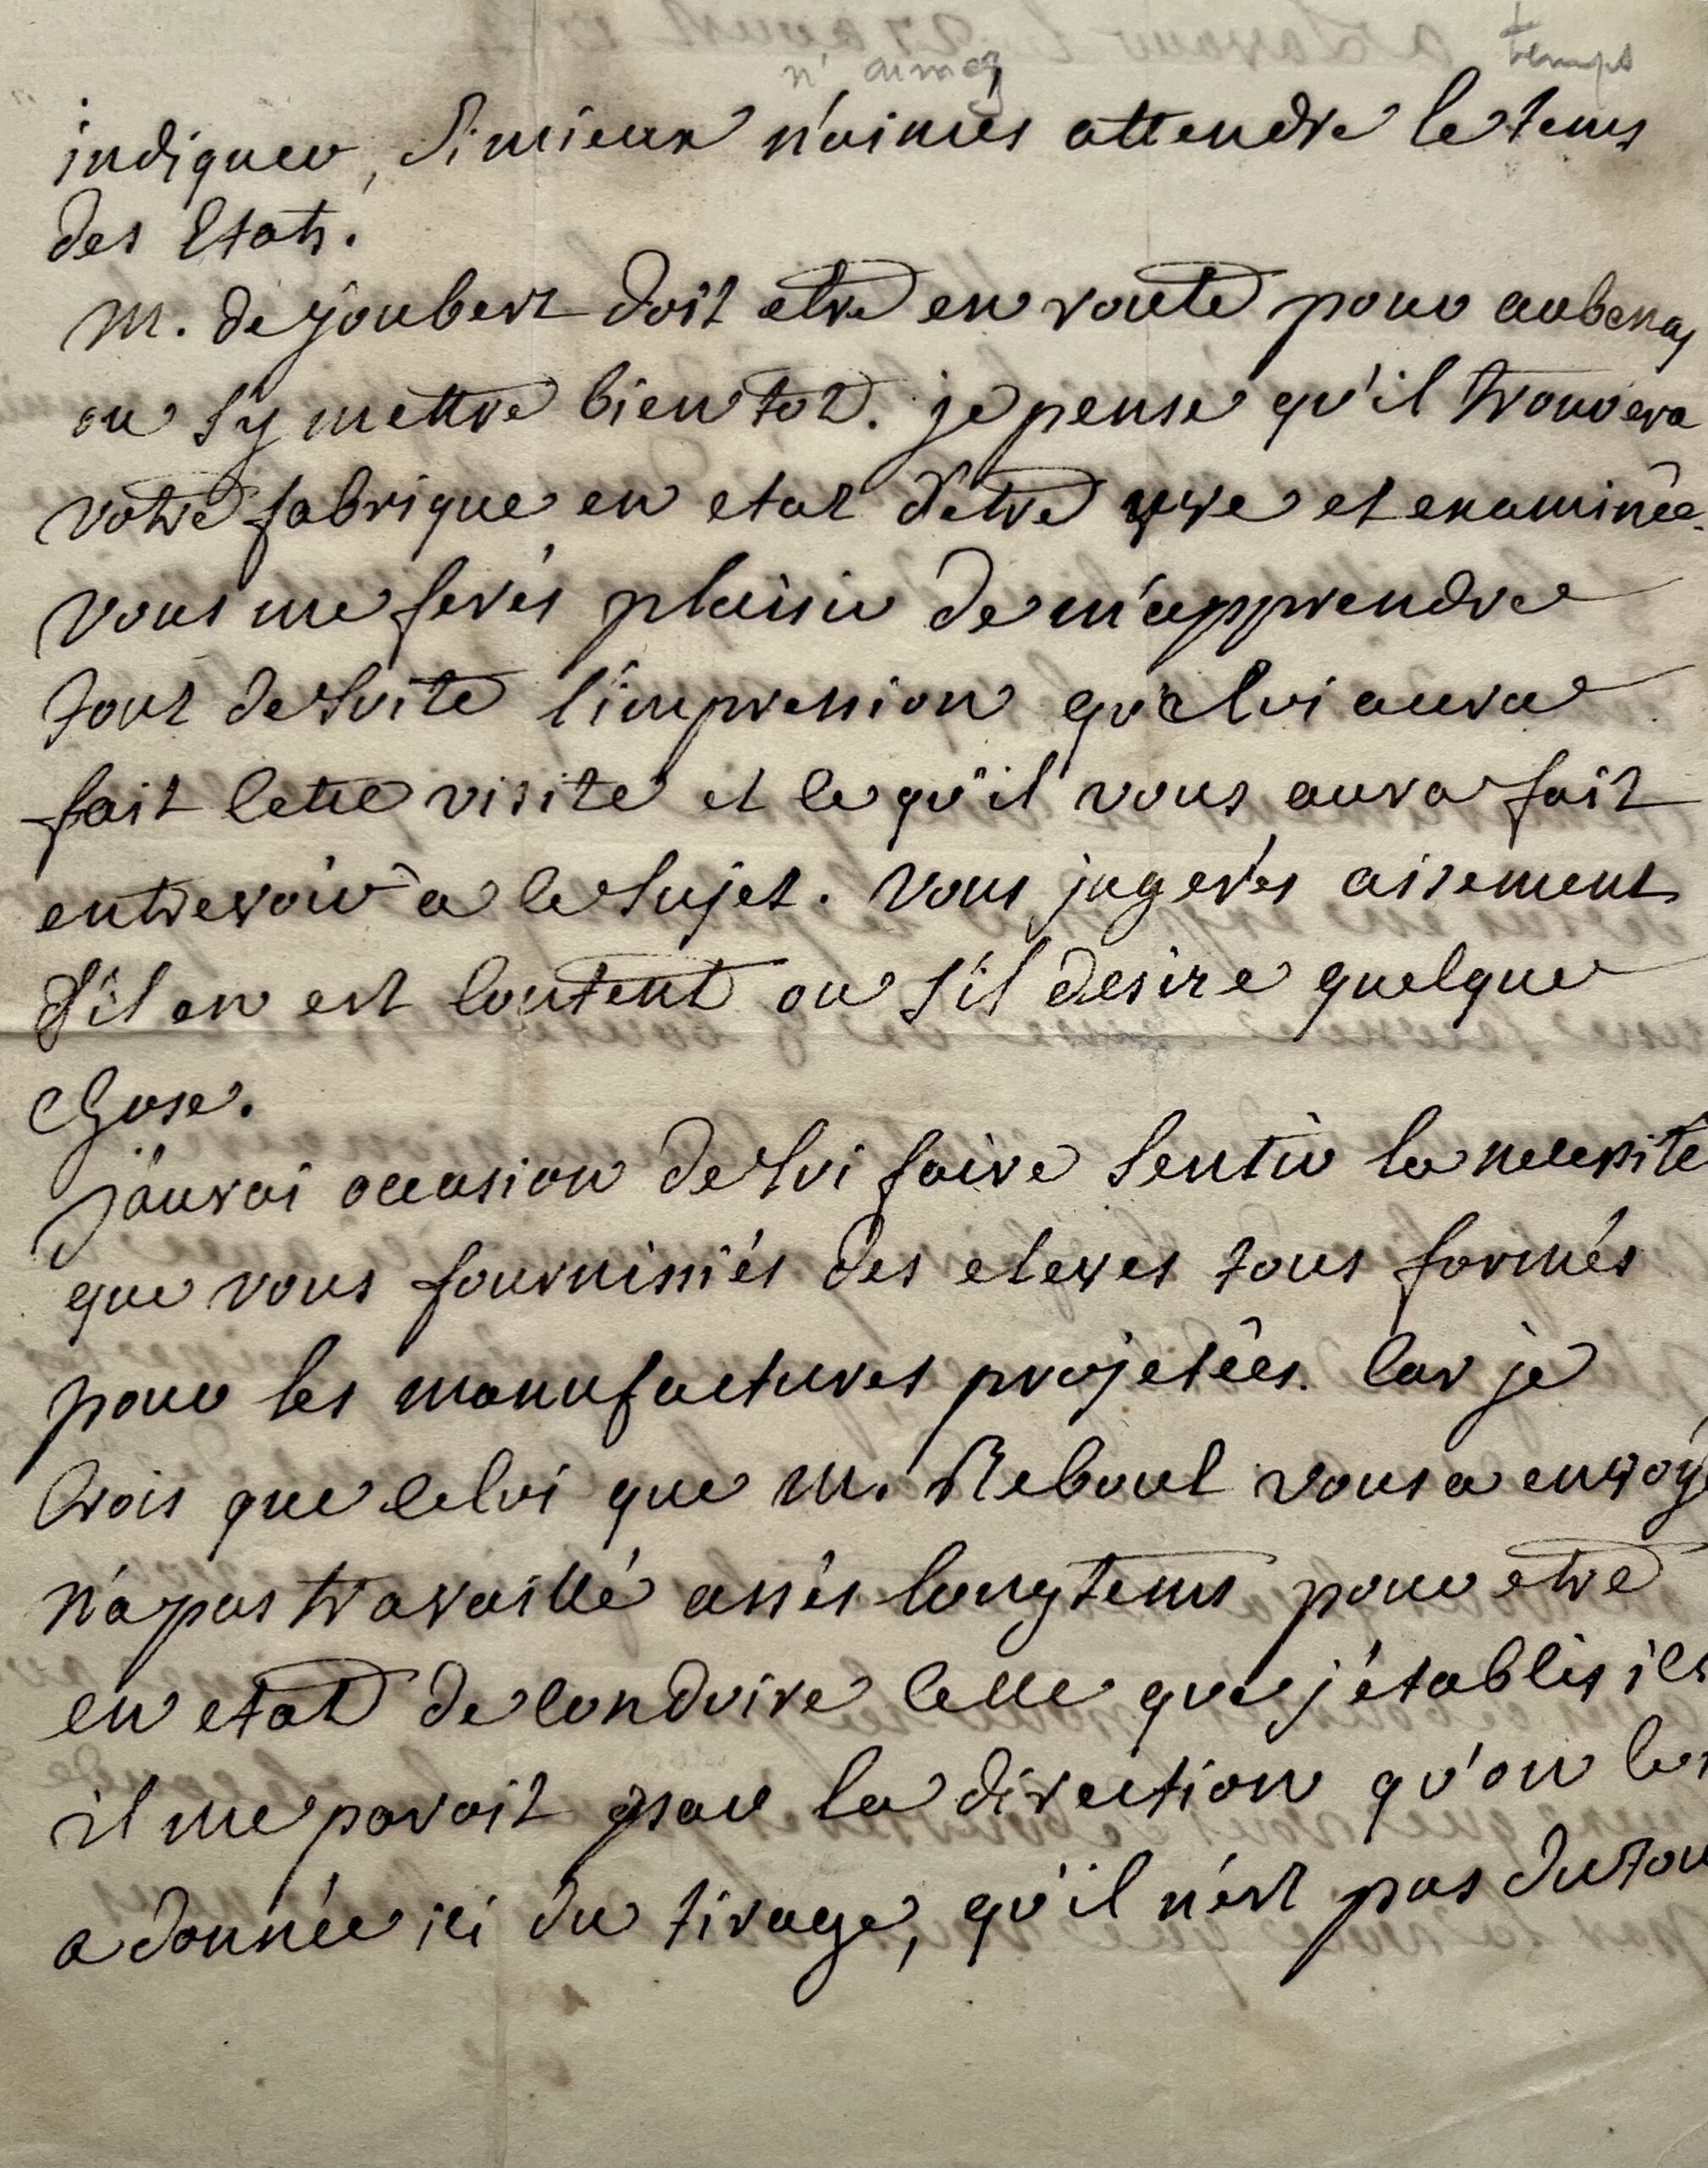 n' aimez temps
indiquer, si mieux n'aimés attendre le tems
des Etats.
M. de joubert doit etre en route pour aubenas
ou s'y mettre bientot. je pense qu'il trouvera
votre fabrique en etat d'etre vue et examinée.
vous me ferés plaisir de m'apprendre
tout de suite l'impression que lui aura
fait cette visite et ce qu'il vous aura fait
entrevoir a ce sujet. vous jugerés aisement
s'il en est content ou s'il desire quelque
chose.
j'aurai occasion de lui faire sentir la necessité
que vous fournissiés des eleves tous formés
pour les manufactures projetées. car je
crois que celui que M. Reboul vous a envoyé
n'a pas travaillé assés longtems pour etre
en etat de conduire celle que j'établis ici
il me paroit par la direction qu'on lui
a donnée ici du tirage, qu'il n'est pas du tout